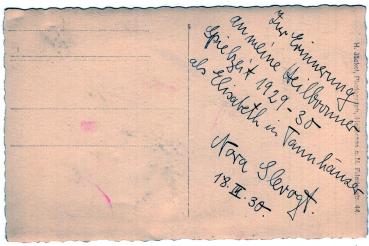 Zur Erinnerung
an meine Heilbronner
Spielzeit 1929-30
als Elisabeth in Tannhäuser
Nora Slevogt.
18. III. 30.